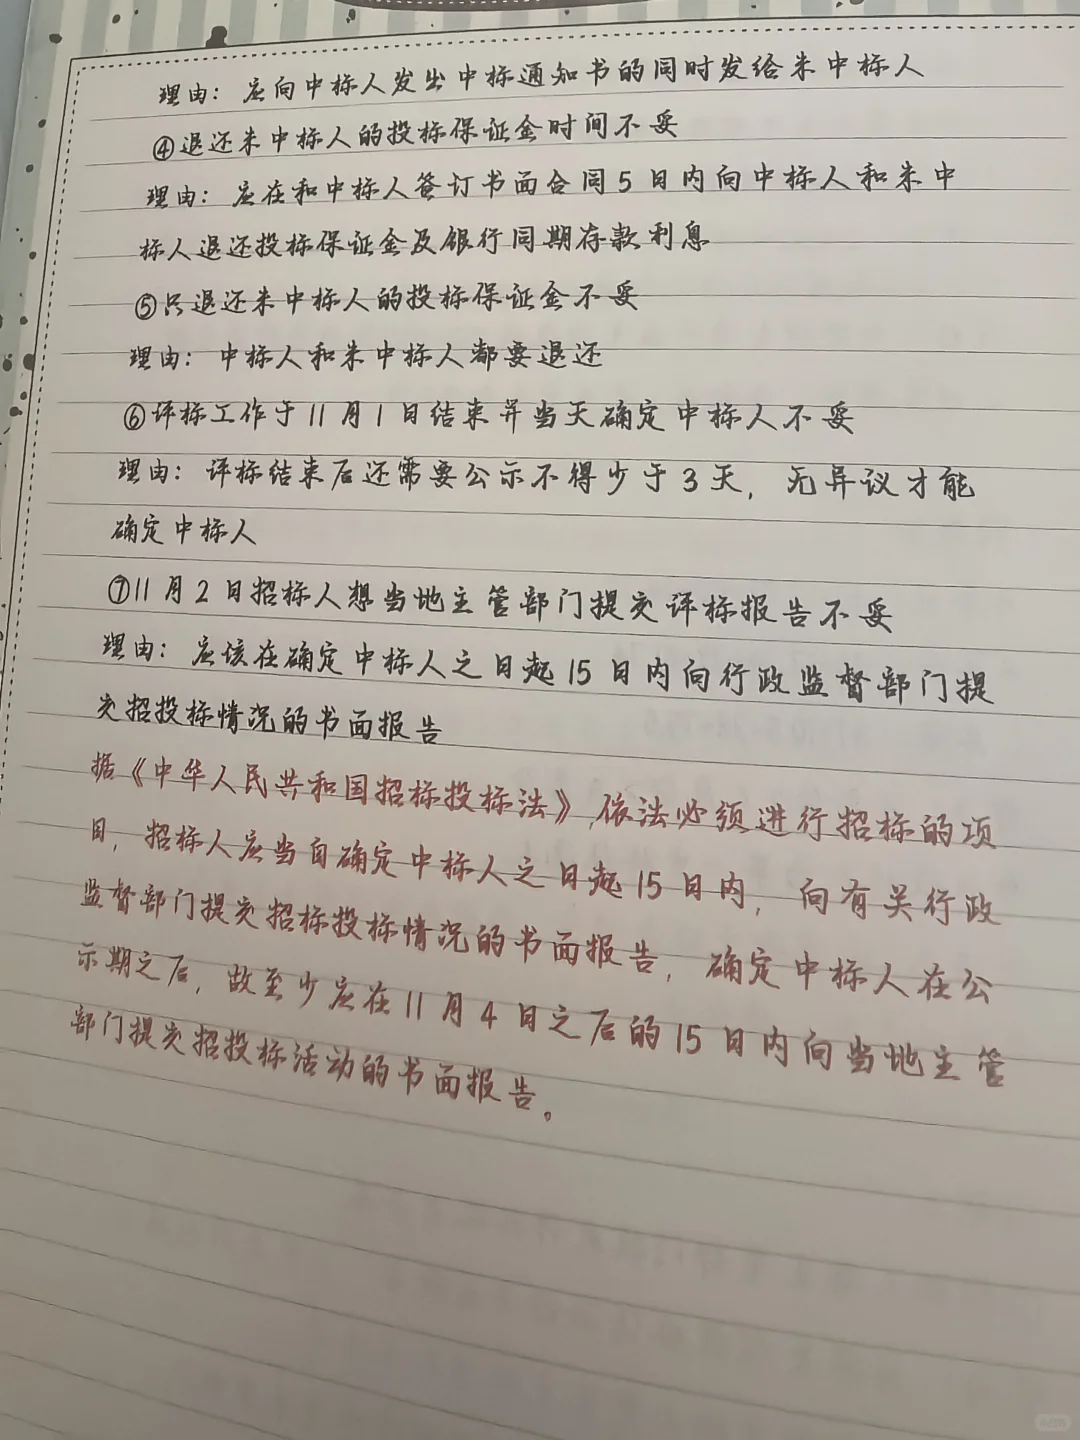 理由：应向中标人发出中标通知书的同时发给未中标人
④退还未中标人的投标保证金时间不妥
理由：应在和中标人签订书面合同5日内向中标人和未中
标人退还投标保证金及银行同期存款利息
⑤只退还未中标人的投标保证金不妥
理由：中标人和未中标人都要退还
⑥评标工作于11月1日结束并当天确定中标人不妥
理由：评标结束后还需要公示不得少于3天，无异议才能
确定中标人
⑦11月2日招标人想当地主管部门提交评标报告不妥
理由：应该在确定中标人之日起15日内向行政监督部门提
交招投标情况的书面报告
据《中华人民共和国招标投标法》,依法必须进行招标的项
目，招标人应当自确定中标人之日起15日内，向有关行政
监督部门提交招标投标情况的书面报告，确定中标人在公
示期之后，故至少应在11月4日之后的15日内向当地主管
部门提交招投标活动的书面报告。